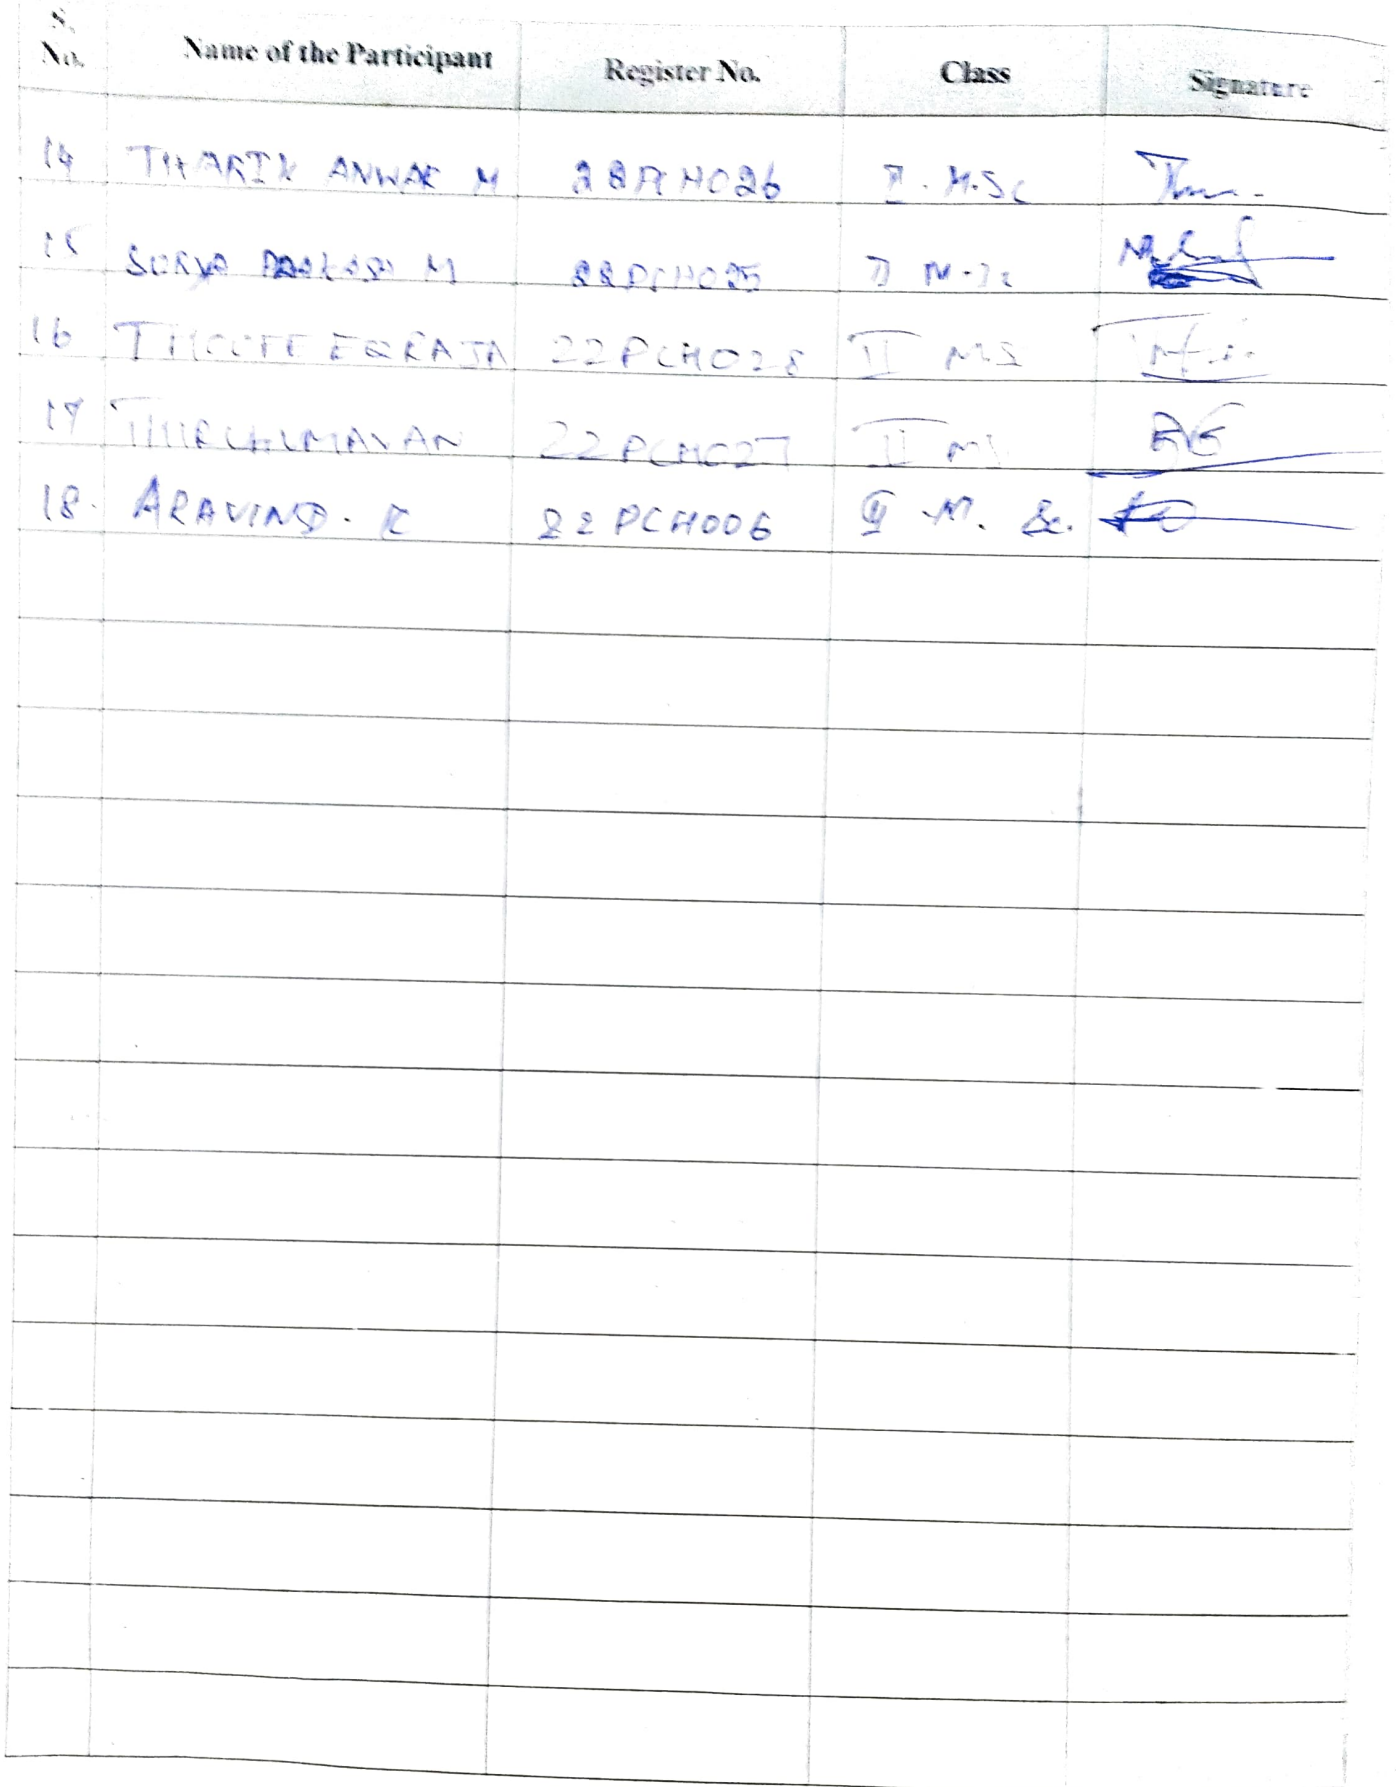 S. No. Name of the Participant Register No. Class Signature
14 THARIK ANWAR M 22PCH026 II. M.Sc
15 SURYA PRAKASH M 22PCH025 II M.Sc
16 22PCH028 II MS
17 THIRUMAVAN 22PCH027 II MS
18. ARAVIND. K 22PCH006 II M. Sc.